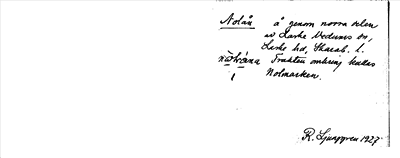 Nolån å genom norra delen
av Laske Vedums sn,
Laske hd, Skarab. l.
Trakten omkring kallas
Nolmarken.
R. Ljunggren 1927